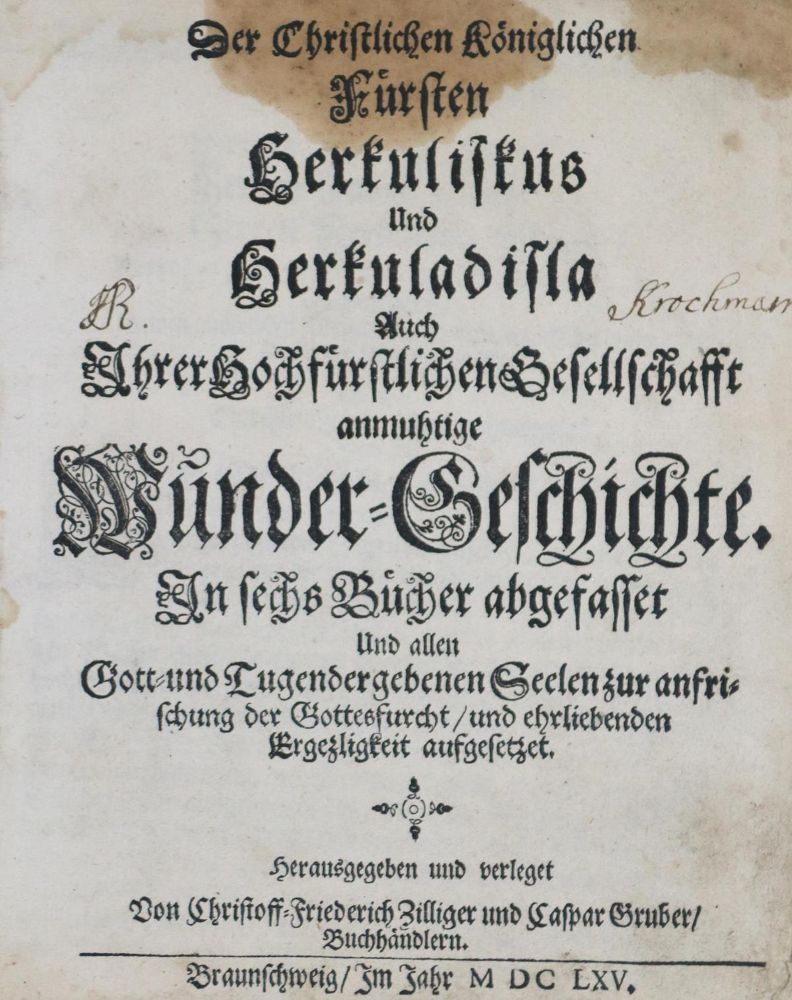 Der Christlichen Königlichen
Fürsten
Herkuliskus
Und
Herkuladisla
R.
Krochman
Auch
Ihrer Hochfürstlichen Gesellschafft
anmuhtige
Wunder-Geschichte.
In sechs Bücher abgefasset
Und allen
Gott- und Tugendergebenen Seelen zur anfri-
schung der Gottesfurcht / und ehrliebenden
Ergezligkeit aufgesetzet.
Herausgegeben und verleget
Von Christoff-Friederich Zilliger und Caspar Gruber /
Buchhändlern.
Braunschweig / Im Jahr M DC LXV.